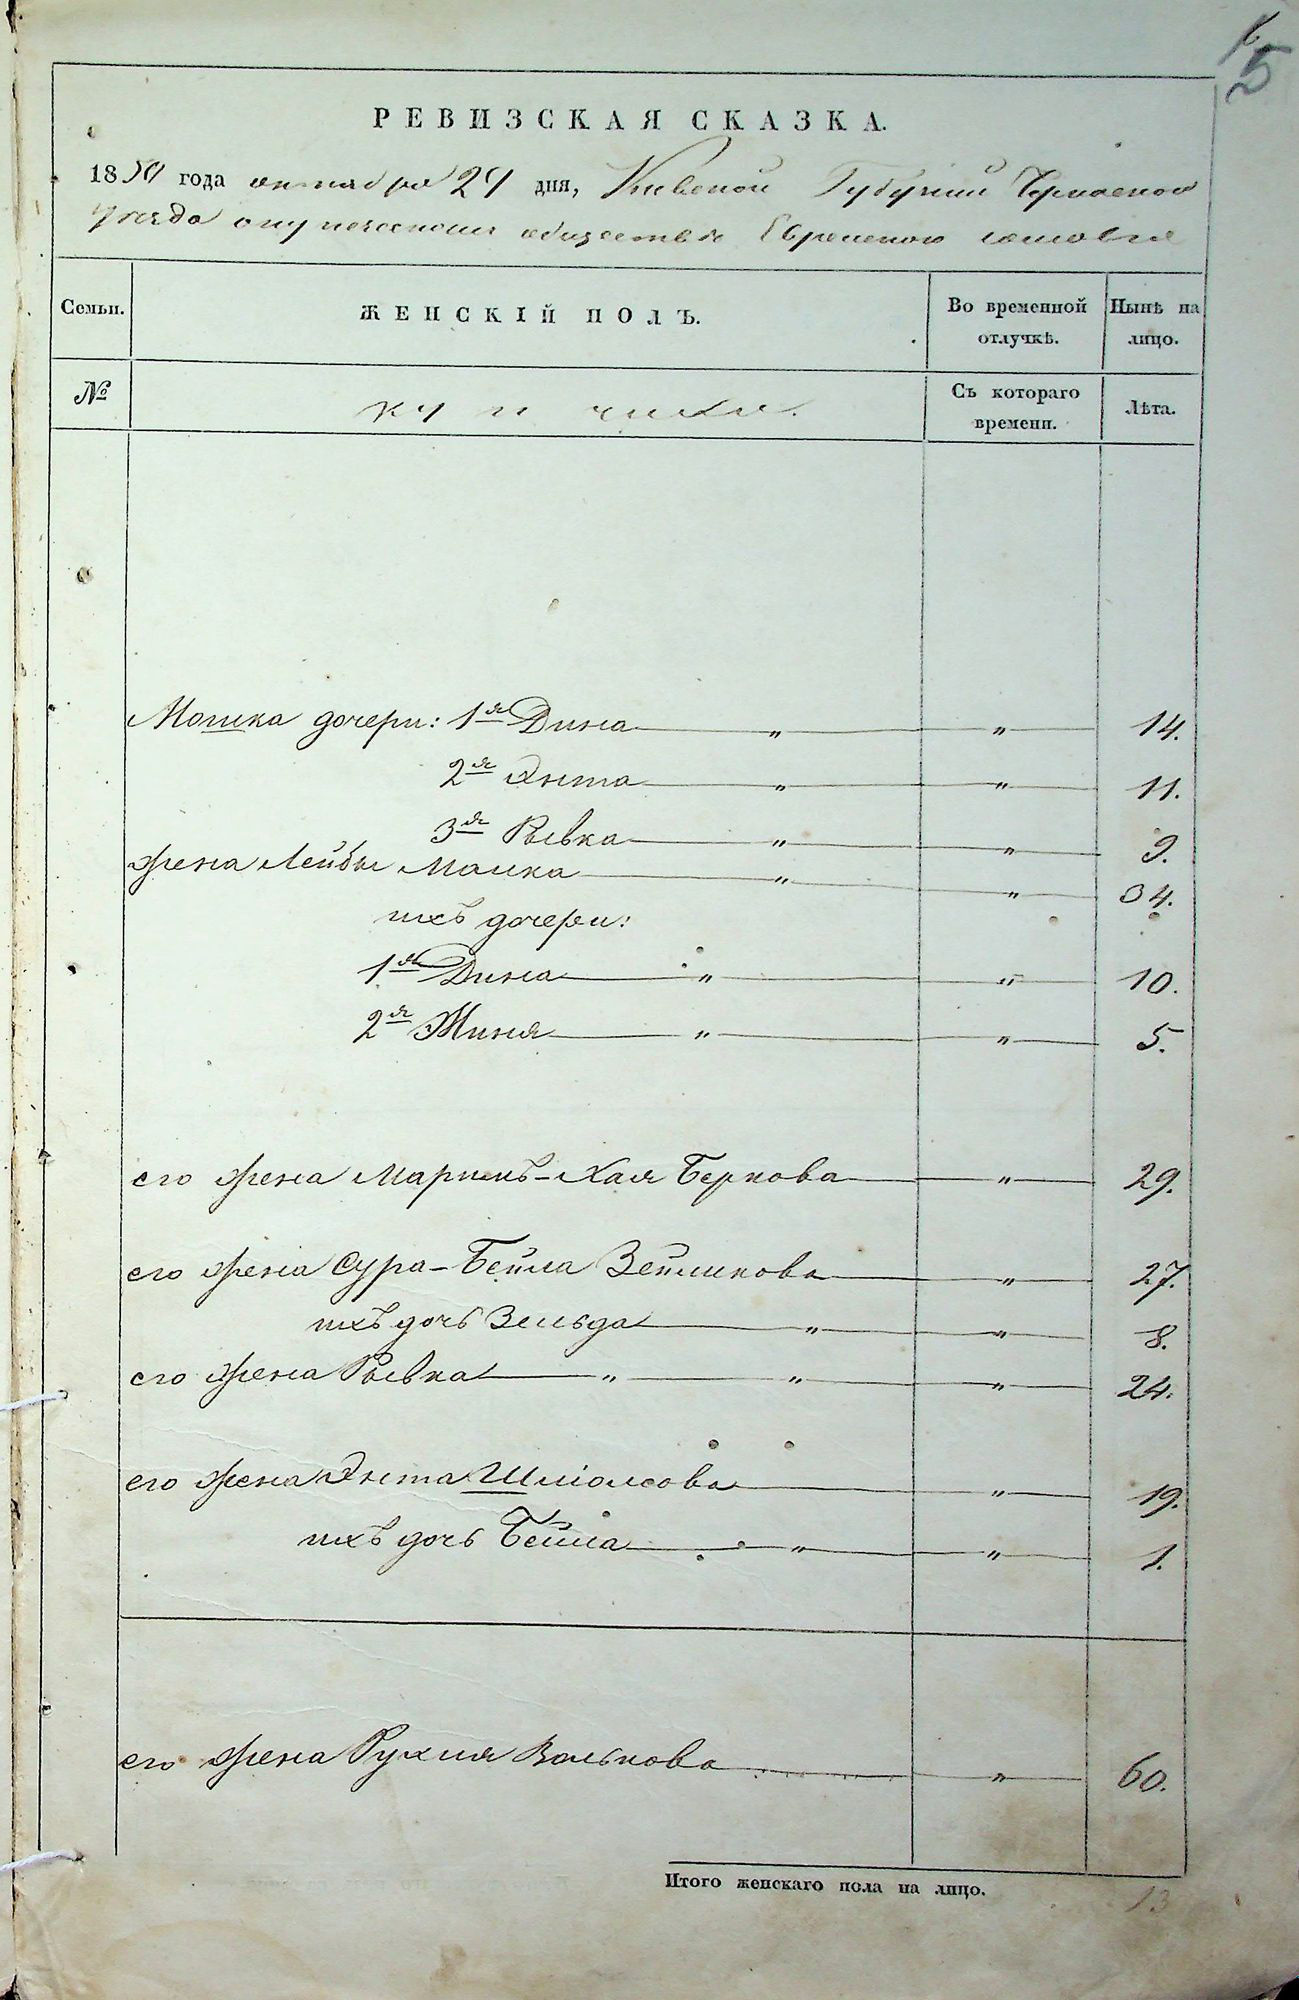 5
РЕВИЗСКАЯ СКАЗКА.
1850 года октября 24 дня, Киевской Губернии Черкаского
уезда о купеческом обществе Еврейского сословия
Семьи. ЖЕНСКІЙ ПОЛЪ. Во временной отлучкѣ. Нынѣ на лицо.
№ купчихи. Съ котораго времени. Лѣта.
Мошка дочери: 1я Дина " " 14.
2я Энта " " 11.
3я Рывка " " 9.
жена Лейбы Малка " " 34.
ихъ дочери:
1я Дина " " 10.
2я Миня " " 5.
его жена Маримъ-Хая Беркова " 29.
его жена Сура-Бейла Зейликова " 27.
ихъ дочь Зельда " " 8.
его жена Рывка " " " 24.
его жена Энта Шліомова " 19.
ихъ дочь Бейла " " 1.
его жена Рухля Волькова " 60.
Итого женскаго пола на лицо. 13